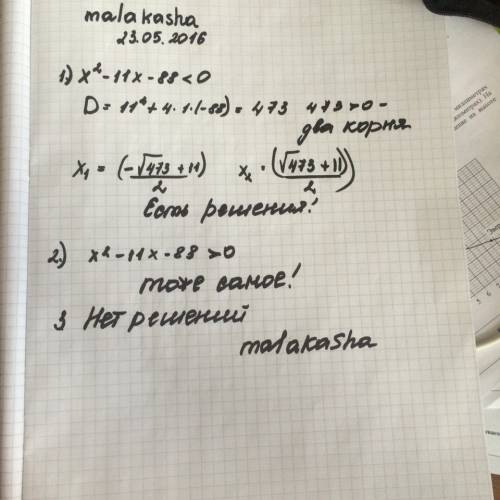 malakasha
23.05.2016
1) x² - 11x - 88 < 0
D = 11² + 4·1·(-88) = 473 473 > 0 -
два корня
x₁ = (-√473 + 11)/2 x₂ = (√473 + 11)/2)
Есть решения!
2.) x² - 11x - 88 > 0
тоже самое!
3 Нет решений
malakasha